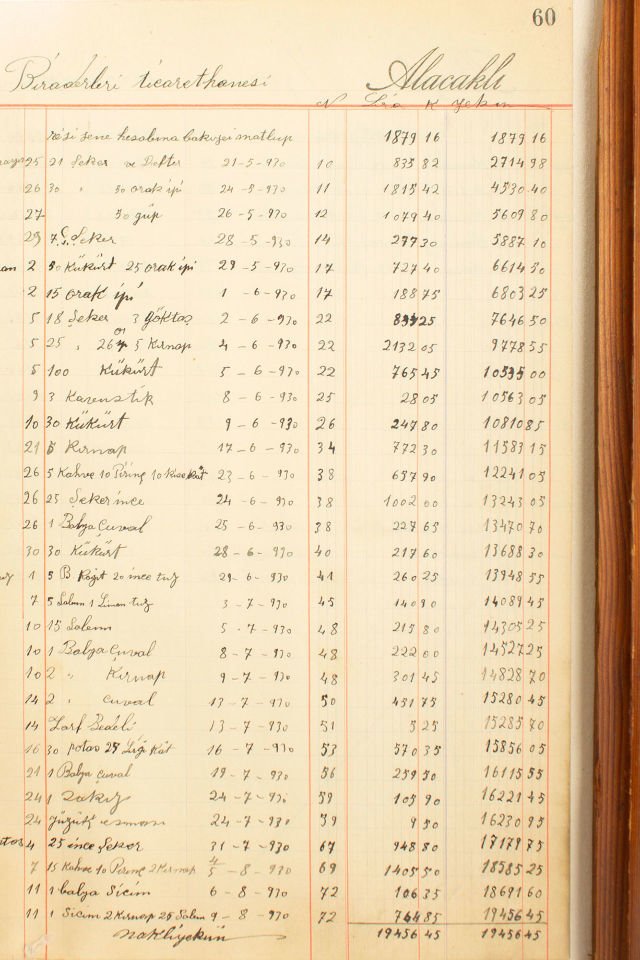 60
Biraderleri ticarethanesi Alacaklı
N Lira K Yekün
sene hesabına matlup 1879 16 1879 16
25 21 Şeker ve Defter 21-5-930 10 835 82 2714 98
26 30 " 50 orak ipi 24-5-930 11 1815 42 4530 40
27 50 26-5-930 12 1079 40 5609 80
29 7 Ç. Şeker 28-5-930 14 277 30 5887 10
2 50 Kükürt 25 orak ipi 29-5-930 17 727 40 6614 50
2 15 orak ipi 1-6-930 17 188 75 6803 25
5 18 Şeker 3 göktaş 2-6-930 22 25 7646 50
5 25 " 5 Kırnap 4-6-930 22 2132 05 9778 55
5 100 Kükürt 5-6-930 22 765 45 00
9 3 8-6-930 25 28 05 10563 05
10 30 Kükürt 9-6-930 26 247 80 10810 85
21 5 Kırnap 17-6-930 34 772 30 11583 15
26 5 Kahve 10 Pirinç 10 23-6-930 38 657 90 12241 05
26 25 Şeker ince 24-6-930 38 1002 00 13243 05
26 1 Balya Çuval 25-6-930 38 227 65 13470 70
30 30 Kükürt 28-6-930 40 217 60 13688 30
1 5 B 20 ince tuz 29-6-930 41 260 25 13948 55
7 5 Salem 1 Limon tuz 3-7-930 45 140 90 14089 45
10 15 Salem 5-7-930 48 215 80 14305 25
10 1 Balya Çuval 8-7-930 48 222 00 14527 25
10 2 " Kırnap 9-7-930 48 301 45 14828 70
14 2 " çuval 13-7-930 50 451 75 15280 45
14 Zarf Bedeli 13-7-930 51 5 25 15285 70
16 30 potas 25 16-7-930 53 570 35 15856 05
21 1 Balya çuval 19-7-930 56 259 50 16115 55
24 1 24-7-930 59 105 90 16221 45
24 24-7-930 59 9 50 16230 95
4 25 ince Şeker 31-7-930 67 948 80 17179 75
7 15 Kahve 10 Pirinç 2 Kırnap 5-8-930 69 1405 50 18585 25
11 1 balya Sicim 6-8-930 72 106 35 18691 60
11 1 Sicim 2 Kırnap 25 Salem 9-8-930 72 764 85 19456 45
nakliyekün 19456 45 19456 45